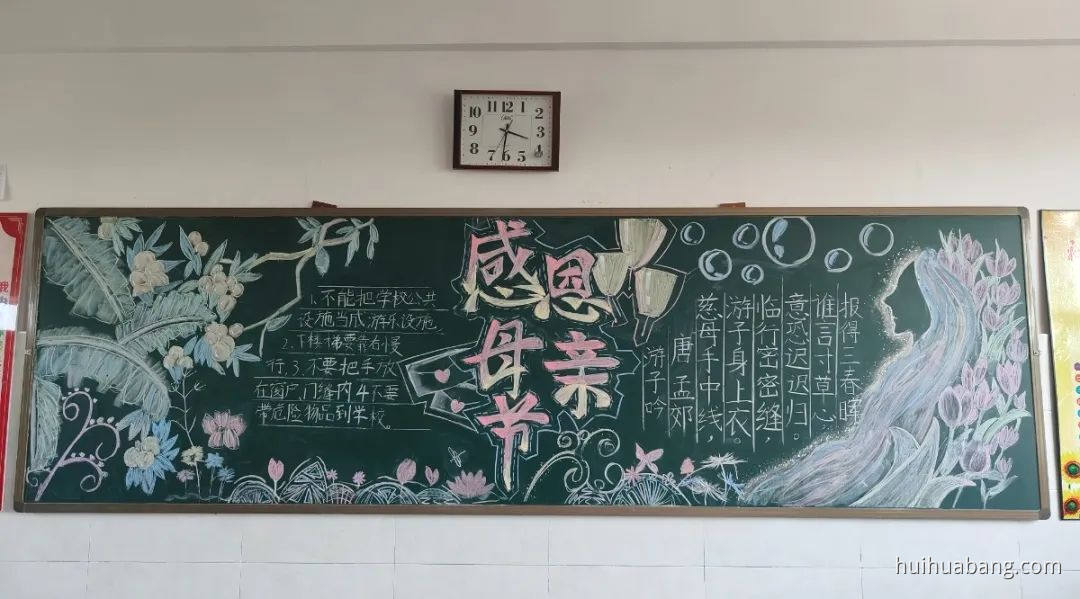 11 12 1
10 2
9 3
8 4
7 6 5
感恩
母亲
节
1、不能把学校公共
设施当成游乐设施
2、下楼梯要靠右慢
行.3、不要把手放
在窗户、门缝内 4 不要
带危险物品到学校。
游子吟
唐 孟郊
慈母手中线，
游子身上衣。
临行密密缝，
意恐迟迟归。
谁言寸草心
报得三春晖
我
huihuabang.com